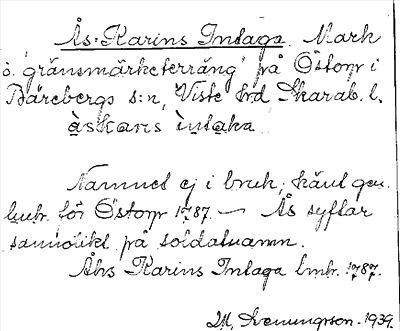 Ås-Karins Intaga. Mark
o. 'gränsmärketerräng' på Östorp i
Bärebergs s:n, Viste hrd Skarab. l.
åskaris intaka
Namnet ej i bruk; känt gen.
lmhr. för Östorp 1787. — Ås syftar
sannolikt på soldatnamn.
Åhs Karins Intaga lmhr. 1787.
M. Svenungsson. 1939.